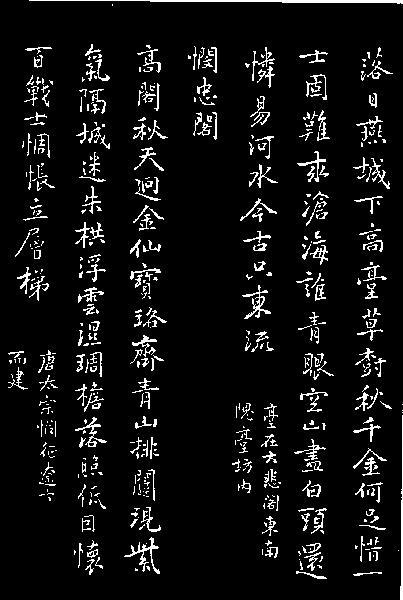 落日燕城下高臺草樹秋千金何足惜一
士固難求滄海誰青眼空山盡白頭還
憐易河水今古只東流
臺在大悲閣東南
隗臺坊内
憫忠閣
高閣秋天迥金仙寶珞齊青山排闥現紫
氣隔城迷朱栱浮雲濕琱檐落照低因懷
百戰士惆悵立層梯
唐太宗憫征遼士
而建